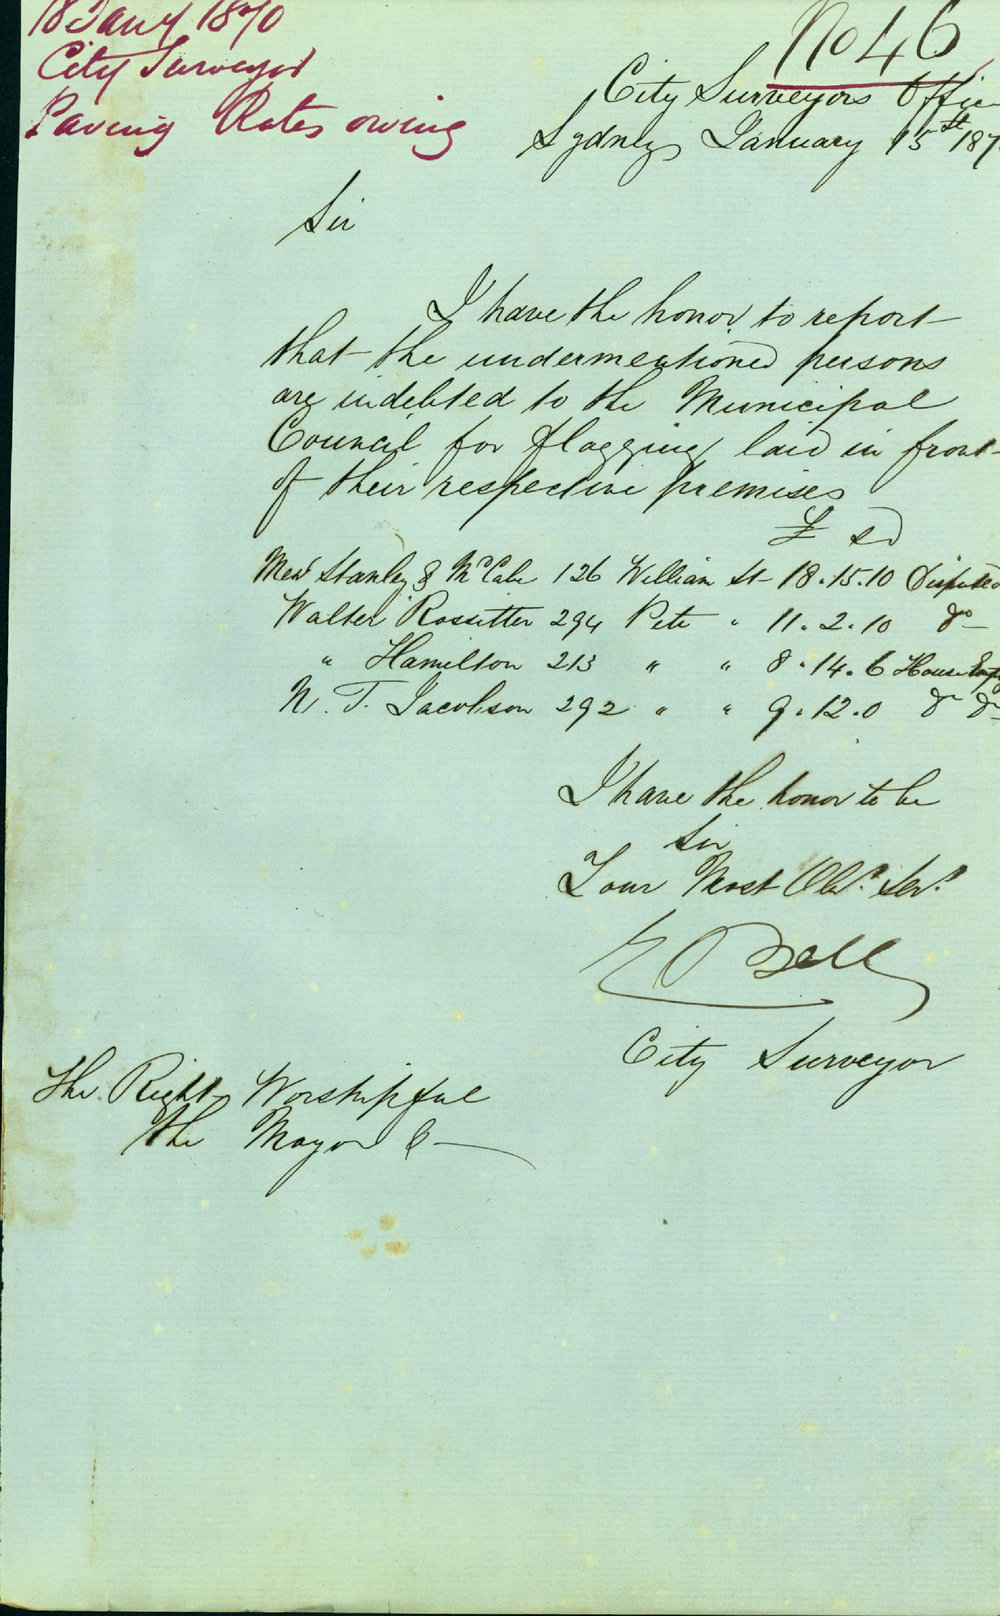 18 Jany 1870
City Surveyor
Paving Rates owing
No 46
City Surveyors Office
Sydney January 15st 187
Sir
I have the honor to report
that the undermentioned persons
are indebted to the Municipal
Council for flagging laid in front
of their respective premises
£ s d
Mess Stanley & McCabe 126 William St 18.15.10 Disputed
Walter Rossitter 294 Pitt " 11.2.10 do
" Hamilton 213 " " 8.14.6 House Empy
N. T. Jacobson 292 " " 9.12.0 do do
I have the honor to be
Sir
Your Most Obt. Svt.
E Bell
City Surveyor
The Right Worshipful
the Mayor &